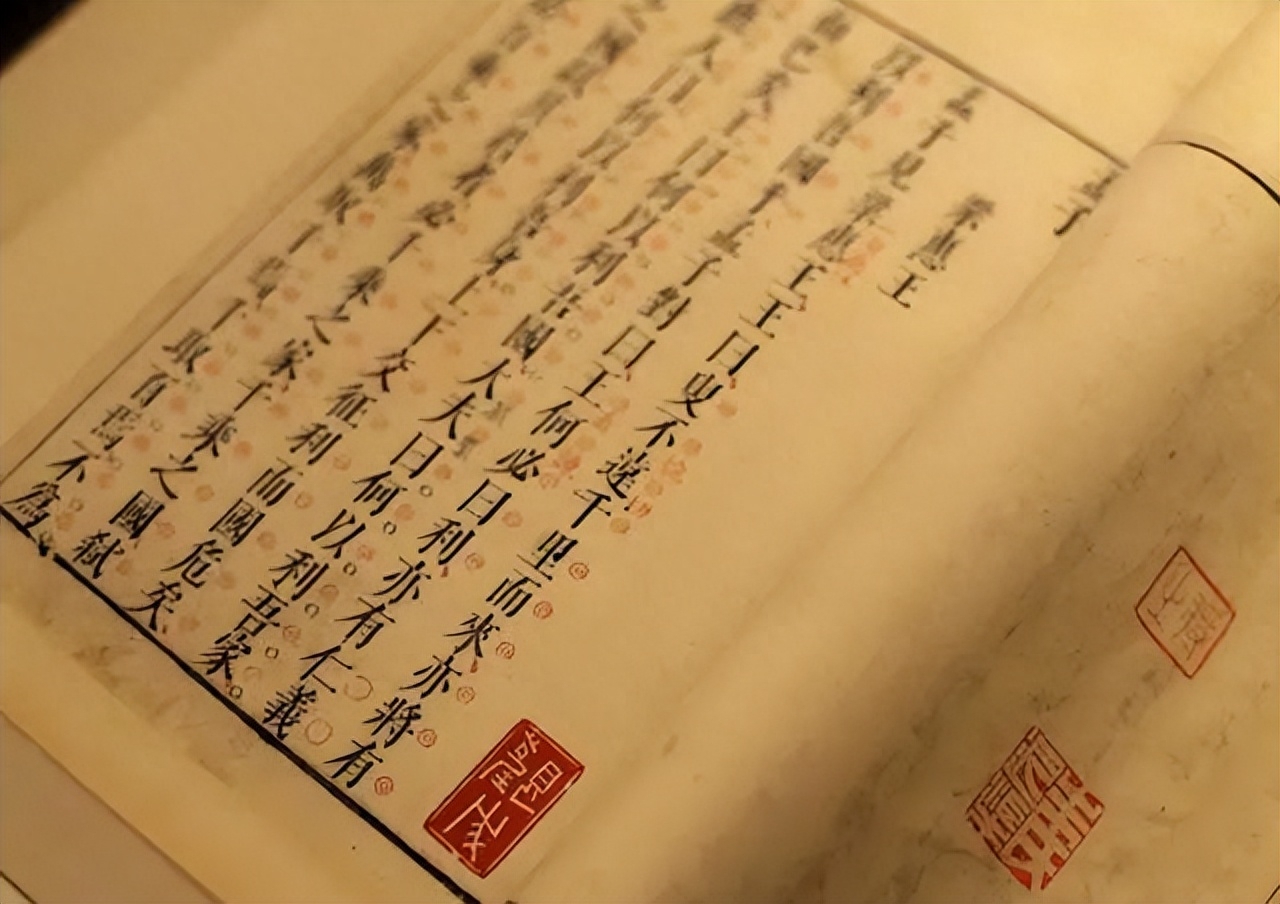 孟子
梁惠王
孟子見梁惠王王曰叟不遠千里而來亦將有
利吾國乎孟子對曰王何必曰利亦有仁義
已矣王曰何以利吾國大夫曰何以利吾家
庶人曰何以利吾身上下交征利而國危矣
之國弒其君者必千乘之家千乘之國弒
百乘之家萬取千焉千取百焉不為